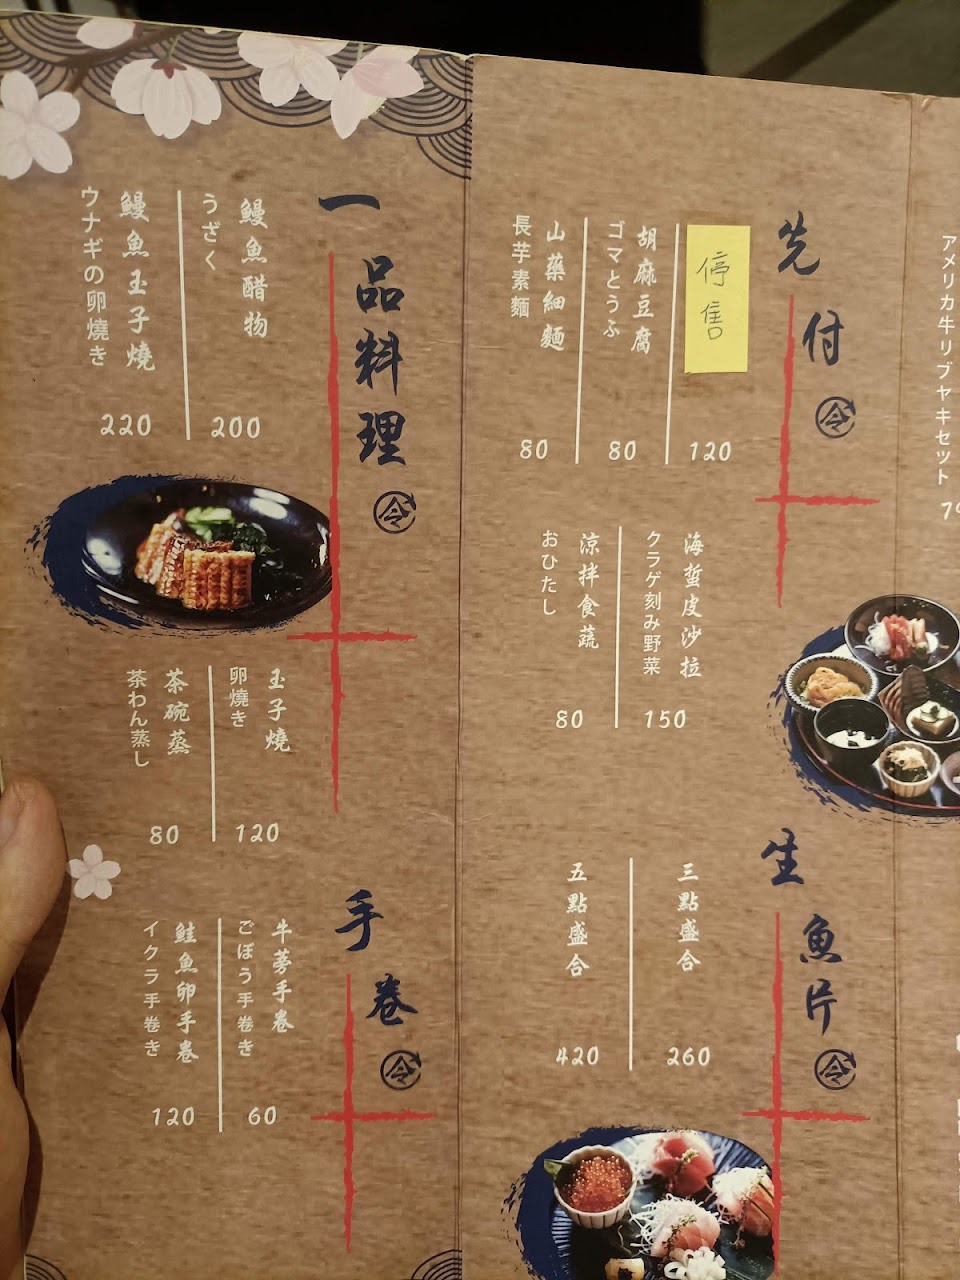 アメリカ牛リブヤキセット
先付
停售
120
胡麻豆腐
ゴマとうふ
80
山藥細麵
長芋素麺
80
海蜇皮沙拉
クラゲ刻み野菜
150
涼拌食蔬
おひたし
80
生魚片
三點盛合
260
五點盛合
420
一品料理
鰻魚醋物
うざく
200
鰻魚玉子燒
ウナギの卵焼き
220
玉子燒
卵焼き
120
茶碗蒸
茶わん蒸し
80
手卷
牛蒡手卷
ごぼう手巻き
60
鮭魚卵手卷
イクラ手巻き
120